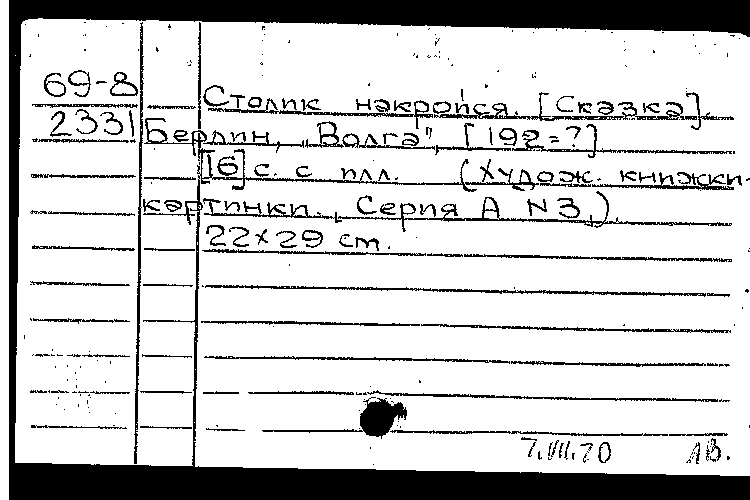 69-8
2331
Столик накройся. [Сказка].
Берлин, „Волга", [192=?]
[16] с. с илл. (Худож. книжки-
картинки., Серия А N3,).
22×29 cm.
7.VII.70 ЛВ.